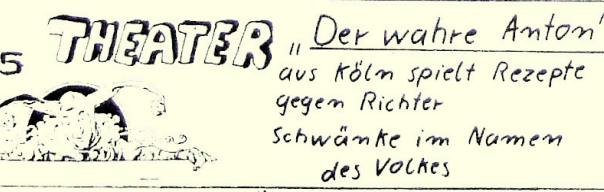 5 THEATER „Der wahre Anton"
aus Köln spielt Rezepte
gegen Richter
Schwänke im Namen
des Volkes